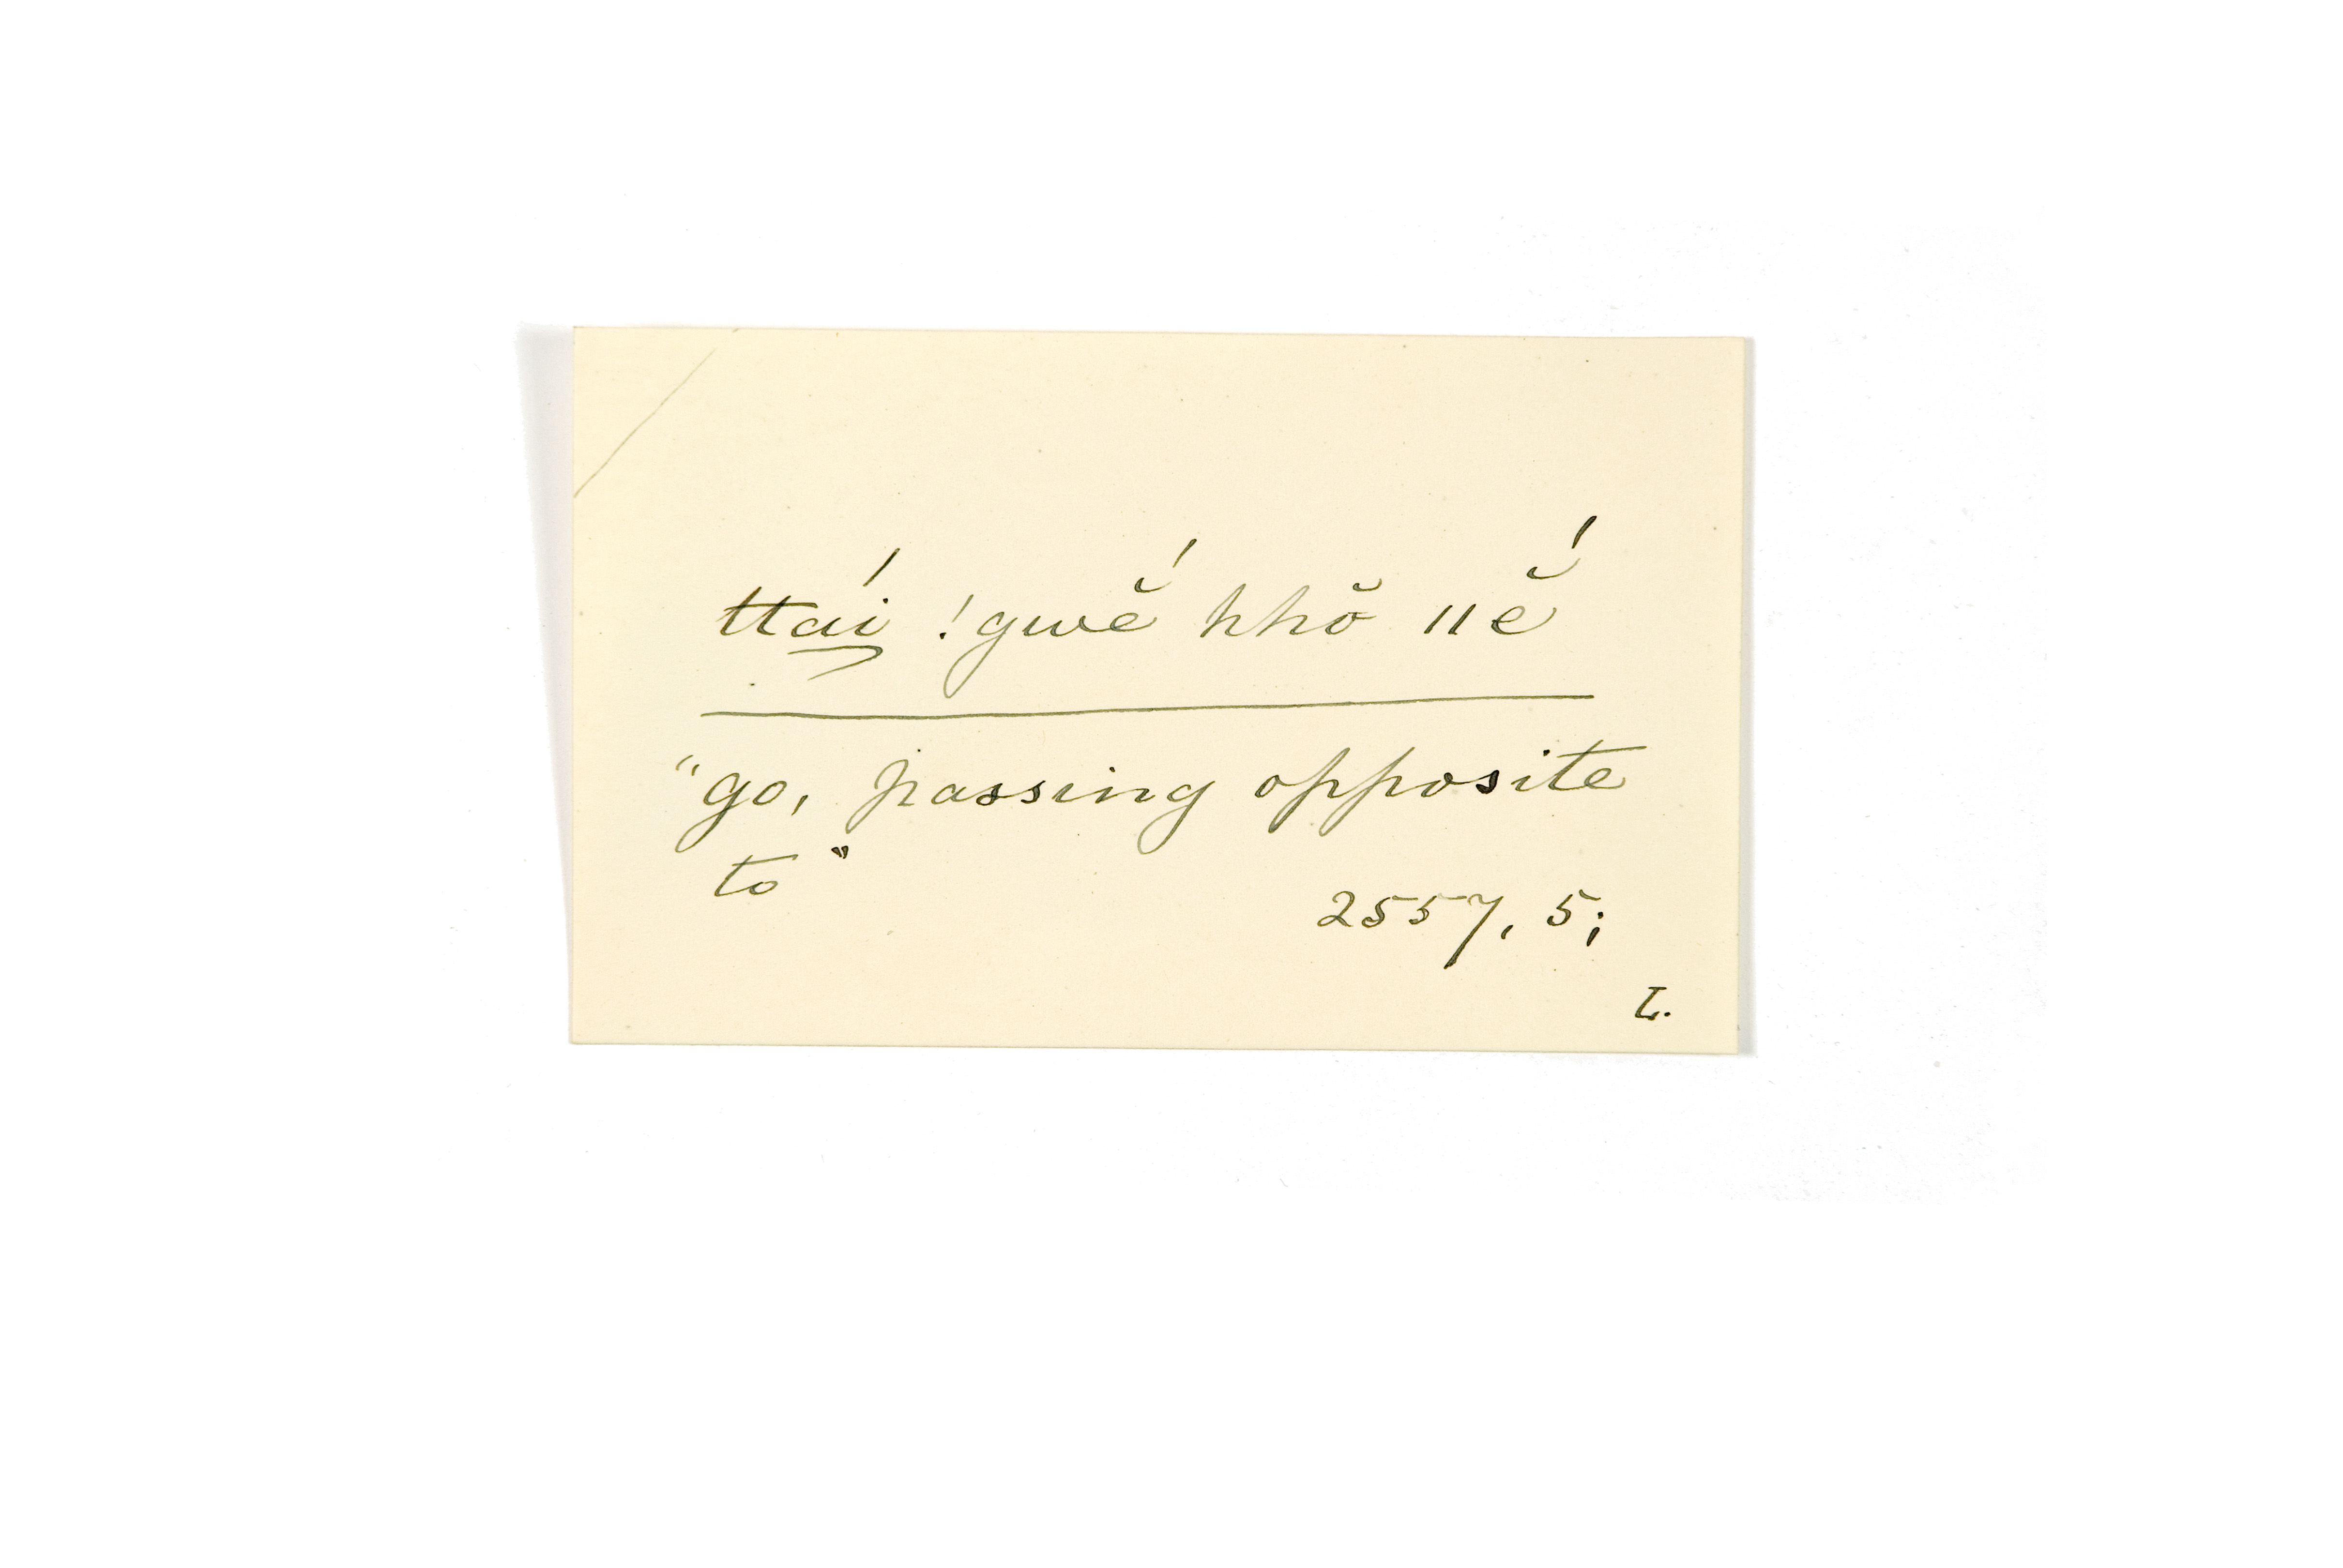 ttái !gwĕ́ hhŏ ǁĕ́
"go, passing opposite
to"
2557, 5;
L.